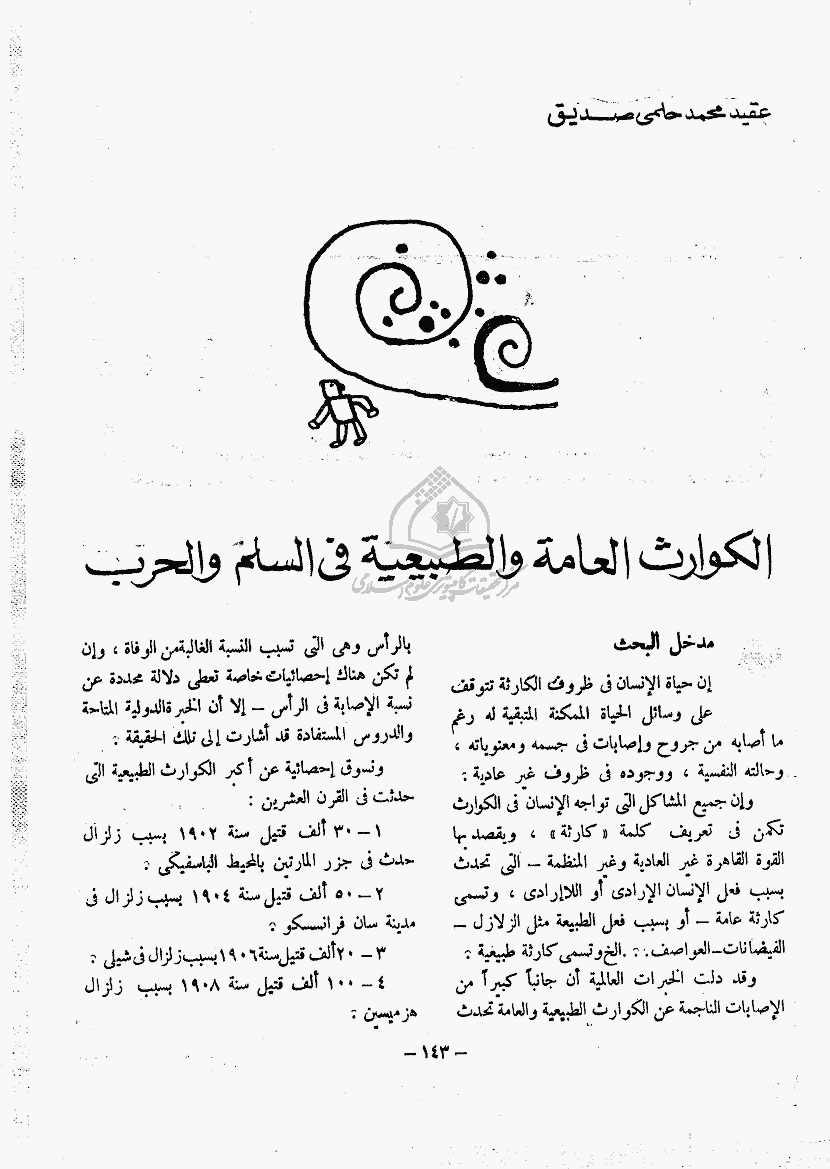 عقيد محمد حلمى صديق
الكوارث العامة والطبيعية فى السلم والحرب
مدخل البحث
إن حياة الإنسان فى ظروف الكارثة تتوقف
على وسائل الحياة الممكنة المتبقية له رغم
ما أصابه من جروح وإصابات فى جسمه ومعنوياته ،
وحالته النفسية ، ووجوده فى ظروف غير عادية .
وإن جميع المشاكل التى تواجه الإنسان فى الكوارث
تكمن فى تعريف كلمة « كارثة » ، ويقصد بها
القوة القاهرة غير العادية وغير المنظمة – التى تحدث
بسبب فعل الإنسان الإرادى أو اللاإرادى ، وتسمى
كارثة عامة – أو بسبب فعل الطبيعة مثل الزلازل –
الفيضانات–العواصف . . . الخ وتسمى كارثة طبيعية .
وقد دلت الخبرات العالمية أن جانباً كبيراً من
الإصابات الناجمة عن الكوارث الطبيعية والعامة تحدث
بالرأس وهى التى تسبب النسبة الغالبة من الوفاة ، وإن
لم تكن هناك إحصائيات خاصة تعطى دلالة محددة عن
نسبة الإصابة فى الرأس – إلا أن الخبرة الدولية المتاحة
والدروس المستفادة قد أشارت إلى تلك الحقيقة .
ونسوق إحصائية عن أكبر الكوارث الطبيعية التى
حدثت فى القرن العشرين :
١ – ٣٠ ألف قتيل سنة ١٩٠٢ بسبب زلزال
حدث فى جزر المارتين بالمحيط الباسفيكى .
٢ – ٥٠ ألف قتيل سنة ١٩٠٤ بسبب زلزال فى
مدينة سان فرانسسكو .
٣ – ٢٠ ألف قتيل سنة ١٩٠٦ بسبب زلزال فى شيلى .
٤ – ١٠٠ ألف قتيل سنة ١٩٠٨ بسبب زلزال
هزميسين .
– ١٤٣ –